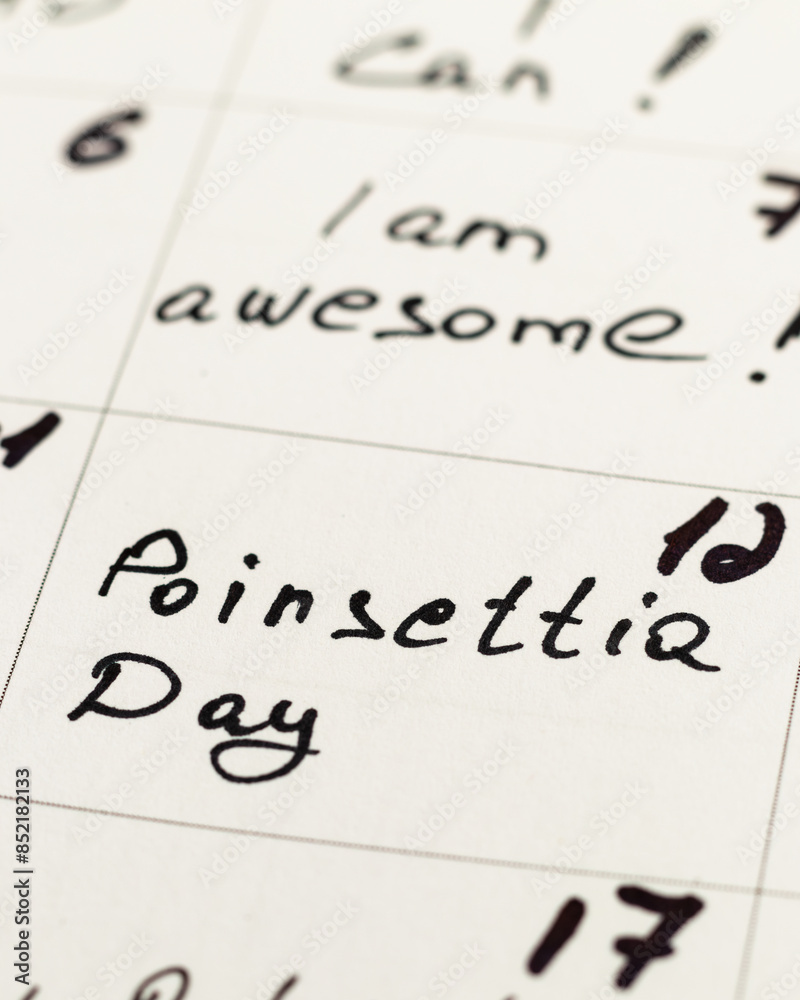 can !
6
I am
7
awesome !
12
Poinsettia
Day
17
Adobe Stock | #852182133